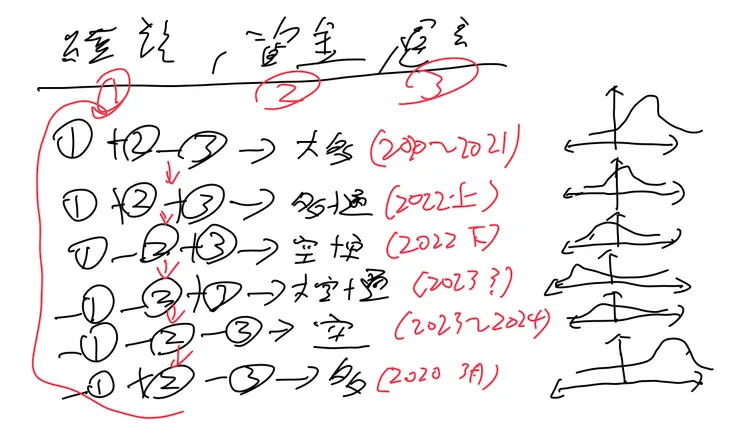 經濟,資金,通膨
① ② ③
① +② -③ → 大多 (2020~2021)
① +② +③ → 多+通 (2022上)
① -② +③ → 空+通 (2022下)
-① -② +③ → 大空+通 (2023?)
-① -② -③ → 空 (2023~2024)
-① +② -③ → 多 (2020 3月)